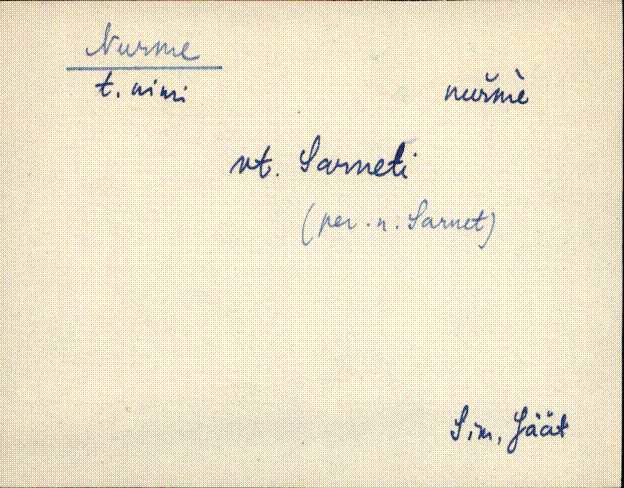 Nurme
t. nimi
nuřmè
vt. Sarneti
(per. n. Sarnet)
Sim, Jäät